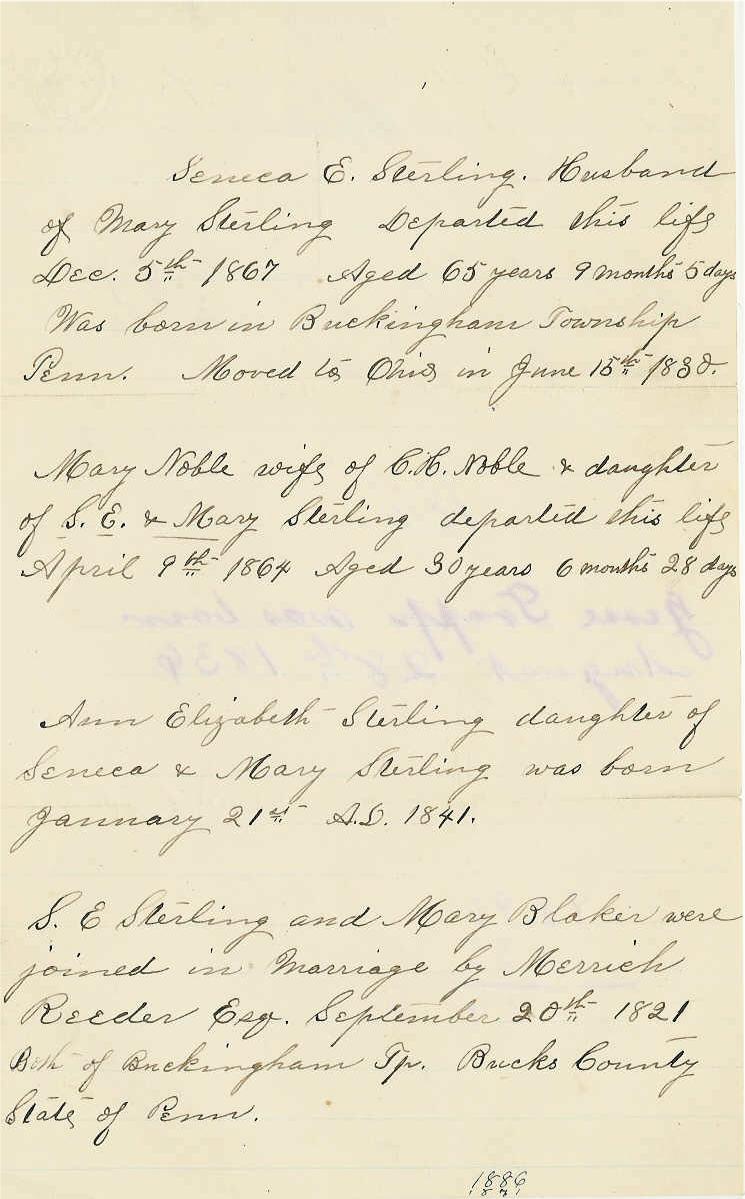 Seneca E. Sterling. Husband
of Mary Sterling Departed this life
Dec. 5th 1867 Aged 65 years 9 months 5 days
Was born in Buckingham Township
Penn. Moved to Ohio in June 15th 1830.
Mary Noble wife of C.H. Noble & daughter
of S. E. & Mary Sterling departed this life
April 9th 1864 Aged 30 years 6 months 28 days
Ann Elizabeth Sterling daughter of
Seneca & Mary Sterling was born
January 21st A.D. 1841.
S. E Sterling and Mary Blaker were
joined in Marriage by Merrich
Reeder Esq. September 20th 1821
Both of Buckingham Tp. Bucks County
State of Penn.
1886